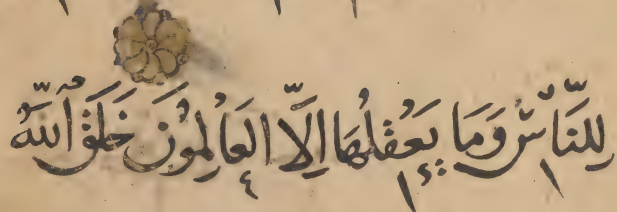 لِلنَّاسِ وَمَا يَعْقِلُهَا إِلَّا الْعَالِمُونَ خَلَقَ اللَّهُ